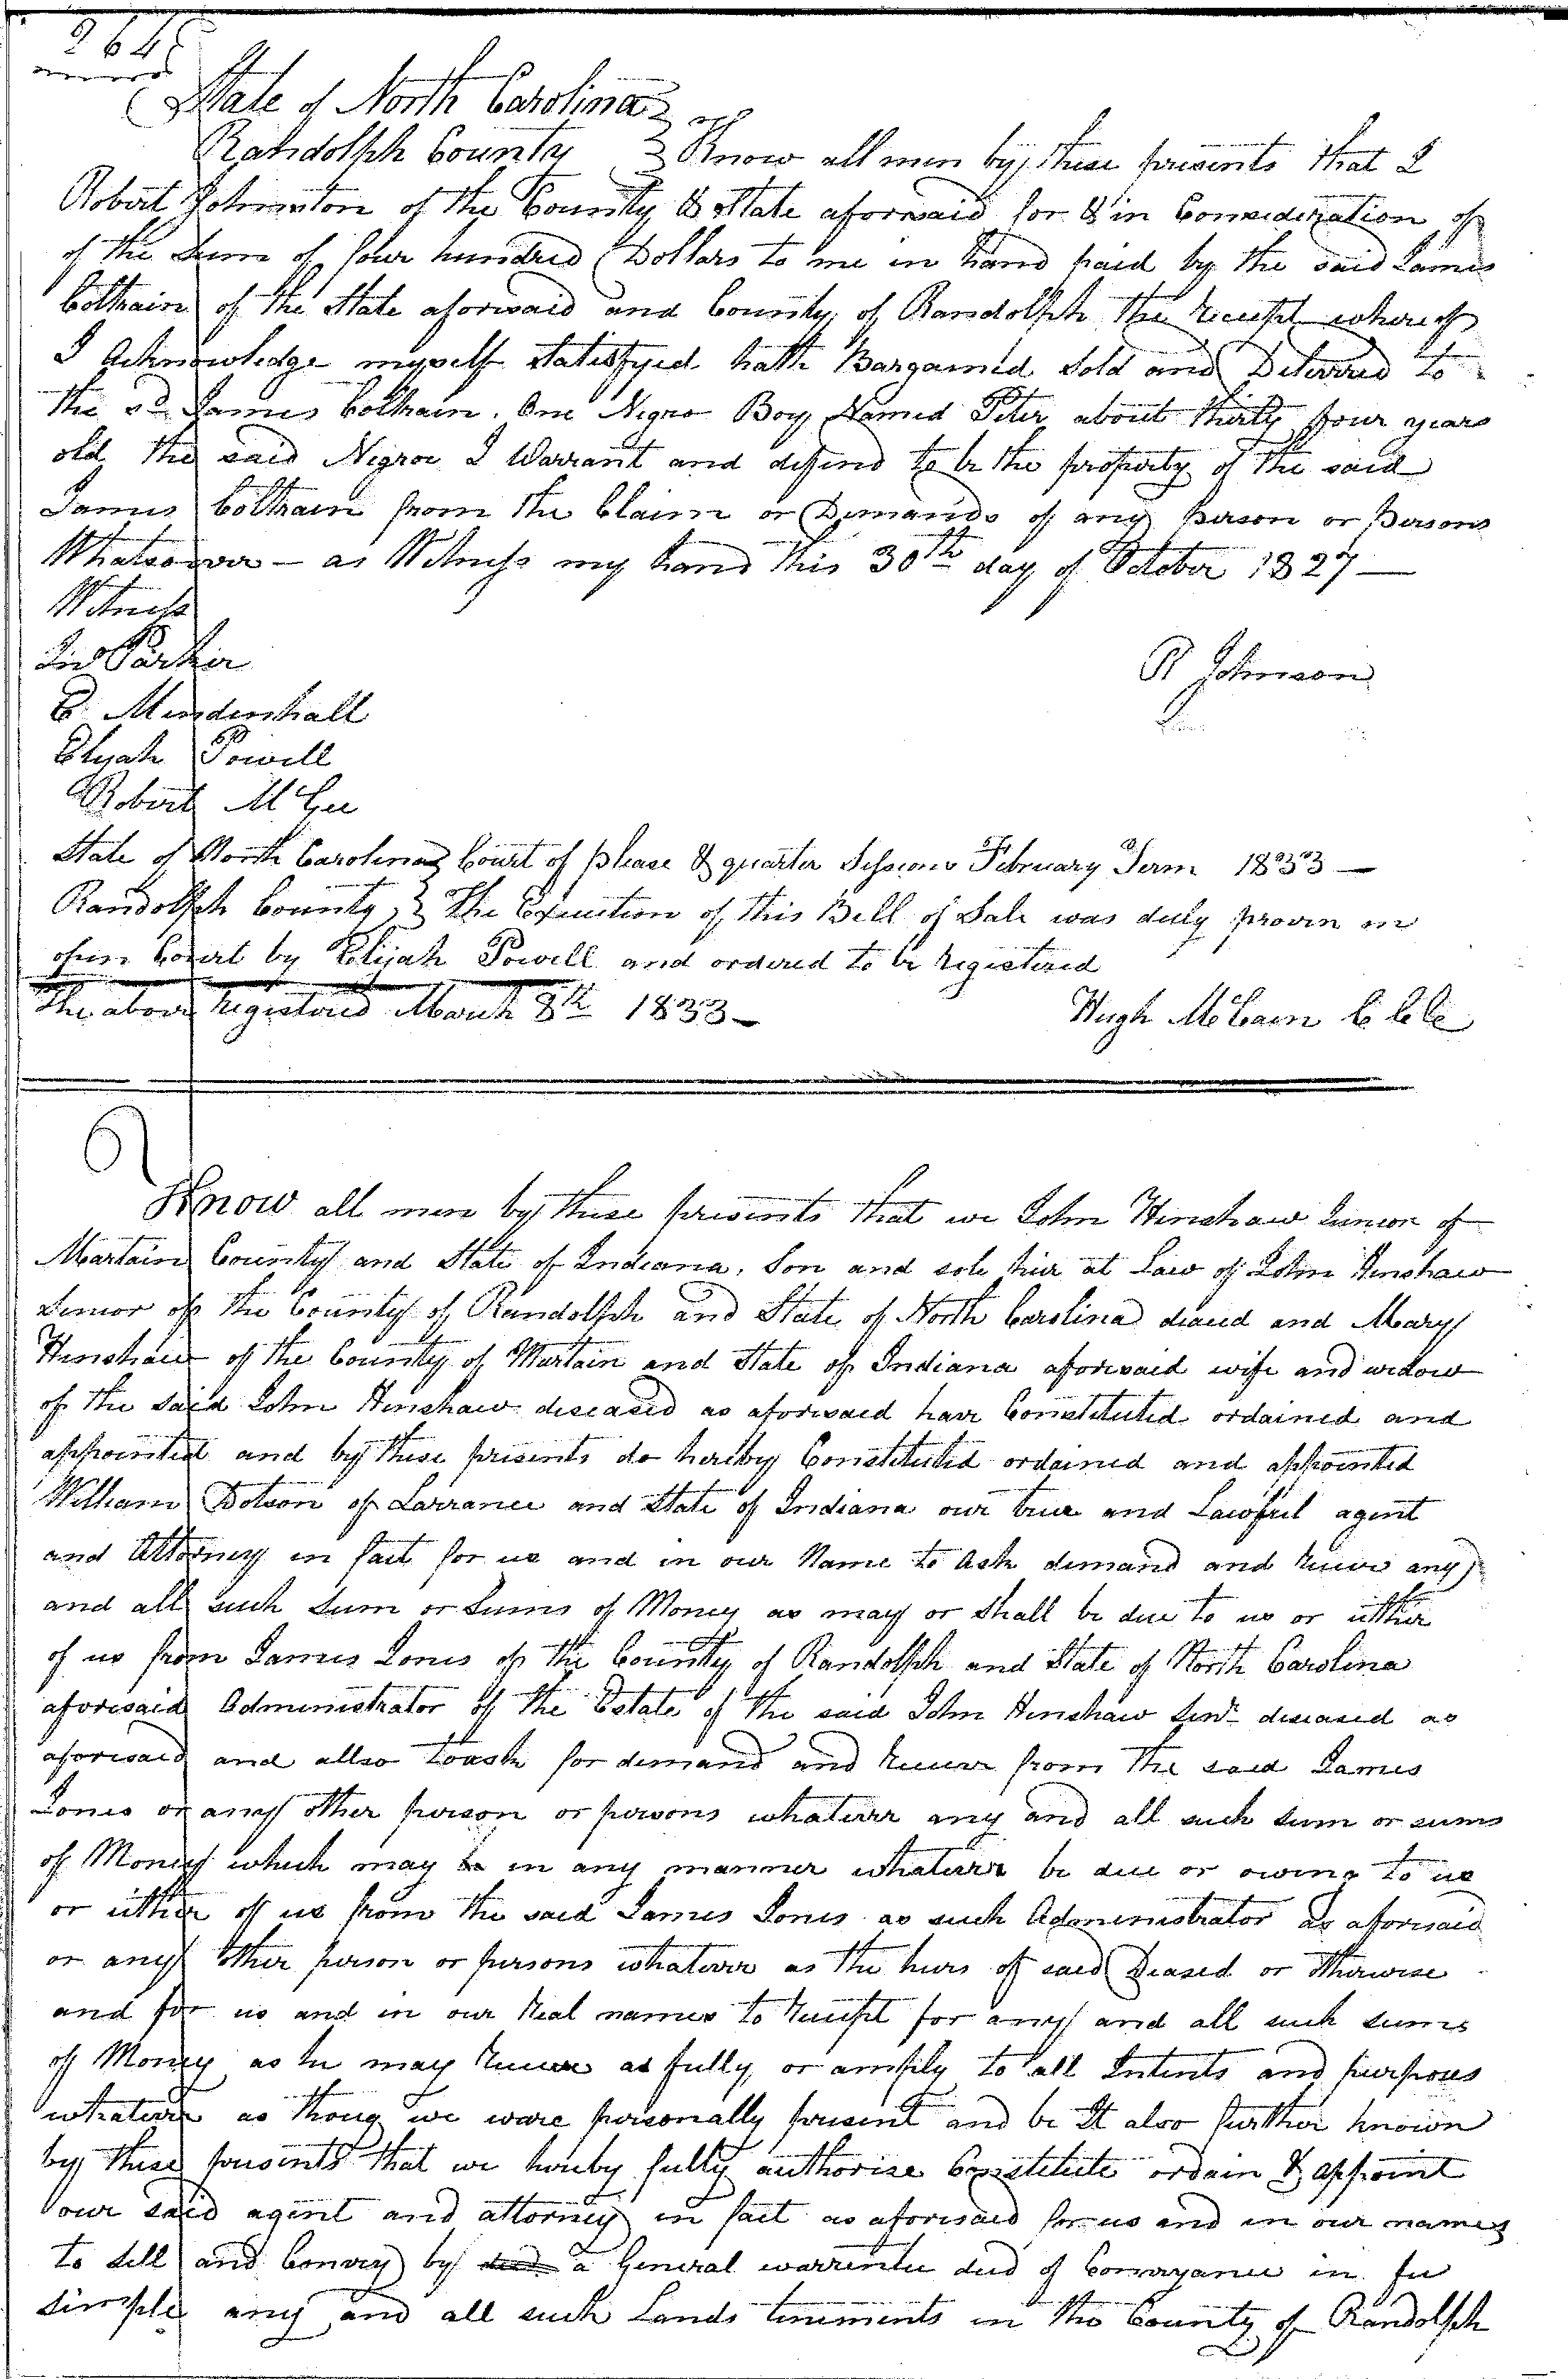 264
State of North Carolina
Randolph County Know all men by these presents that I
Robert Johnston of the County & State aforesaid for & in Consideration of
of the sum of four hundred Dollars to me in hand paid by the said James
Coltrain of the State aforesaid and County of Randolph the receipt whereof
I Acknowledge myself Satisfyed hath Bargained Sold and Delivered to
the sd James Coltrain. One Negro Boy Named Peter about thirty four years
old the said Negroe I Warrant and defend to be the property of the said
James Coltrain from the Claim or Demands of any person or persons
Whatsoever – as Witness my hand this 30th day of October 1827 —
Witness
Jno Parker
R Johnson
E. Mendenhall
Elijah Powell
Robert McGee
State of North Carolina Court of please & quarter Sessions February Term 1833 —
Randolph County The Execution of this Bill of Sale was duly proven in
open Court by Elijah Powell and ordered to be registered
The above registered March 8th 1833 –
Hugh McCain C Clk
Know all men by these presents that we John Hinshaw Junior of
Martain County and State of Indiana, Son and sole heir at Law of John Hinshaw
Senior of the County of Randolph and State of North Carolina deaced and Mary
Hinshaw of the County of Martain and State of Indiana aforesaid wife and widow
of the said John Hinshaw deceased as aforesaid have Constituted ordained and
appointed and by these presents do hereby Constituted ordained and appointed
William Dotson of Larrance and State of Indiana our true and Lawful agent
and Attorney in fact for us and in our Name to Ask demand and receive any
and all such sum or sums of Money as may or shall be due to us or either
of us from James Jones of the County of Randolph and State of North Carolina
aforesaid Administrator of the Estate of the said John Hinshaw Senr deceased as
aforesaid and allso to ask for demand and receive from the said James
Jones or any other person or persons whatever any and all such sum or sums
of Money which may be in any manner whatever be due or owing to us
or either of us from the said James Jones as such Administrator as aforesaid
or any other person or persons whatever as the heirs of said Deased or otherwise
and for us and in our Real names to receipt for any and all such sums
of Money as he may receive as fully or amply to all Intents and purposes
whatever as thoug we ware personally present and be It also further known
by these presents that we hereby fully authorise Constitute ordain & appoint
our said agent and attorney in fact as aforesaid for us and in our names
to sell and Convey by deed a General warrentee deed of Conveyance in fee
simple any and all such Lands tenements in the County of Randolph